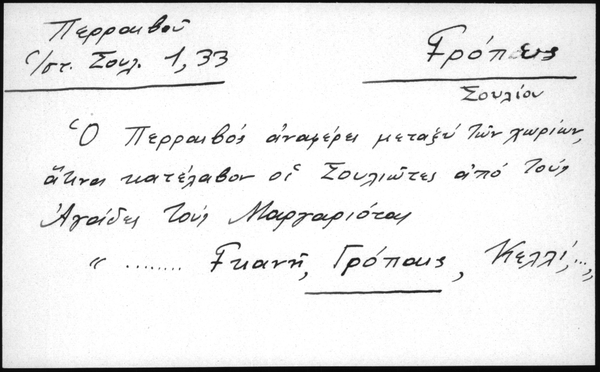 Περραιβοῦ
Ἱστ. Σουλ. 1,33
Γρόπαις
Σουλίου
Ὁ Περραιβός ἀναφέρει μεταξύ τῶν χωρίων,
ἅτινα κατέλαβον οἱ Σουλιῶτες ἀπό τούς
Ἀγάδες τούς Μαργαριότας
“ ........ Γκανή, Γρόπαις, Κελλί,...,,